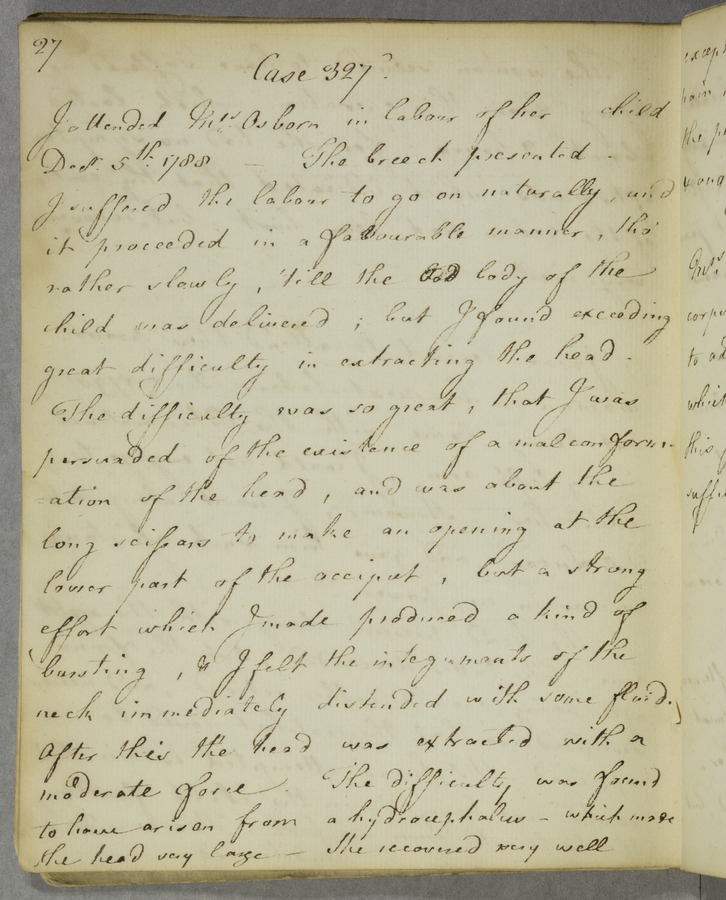 27
Case 327.
I attended Mrs. Osborn in labour of her child
Decr. 5th. 1788 — The breech presented.
I suffered the labour to go on naturally, and
it proceeded in a favourable manner, tho'
rather slowly, 'till the body of the
child was delivered; but I found exceeding
great difficulty in extracting the head.
The difficulty was so great, that I was
persuaded of the existence of a malconform-
=ation of the head, and was about the
long scissars to make an opening at the
lower part of the occiput, but a strong
effort which I made produced a kind of
bursting, & I felt the integuments of the
neck immediately distended with some fluid.
After this the head was extracted with a
moderate force. The difficulty was found
to have arisen from a hydrocephalus – which made
the head very large — She recovered very well